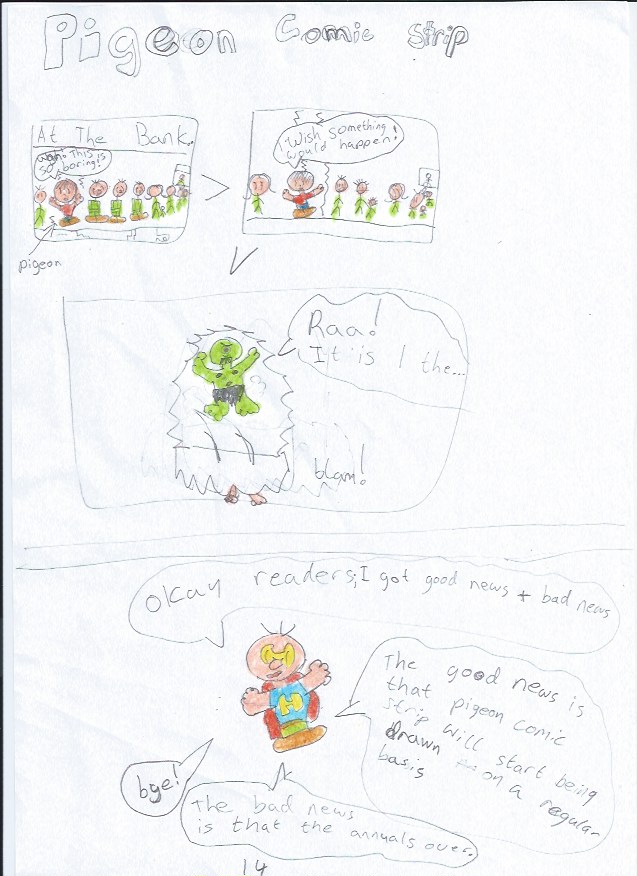 Pigeon Comic Strip
At The Bank.
This is
so boring!
pigeon
I Wish Something
would happen!
Raa!
It is I the...
blam!
Okay readers; I got good news + bad news
The good news is
that pigeon comic
strip will start being
drawn on a regular
basis
bye!
The bad news
is that the annuals over.
14